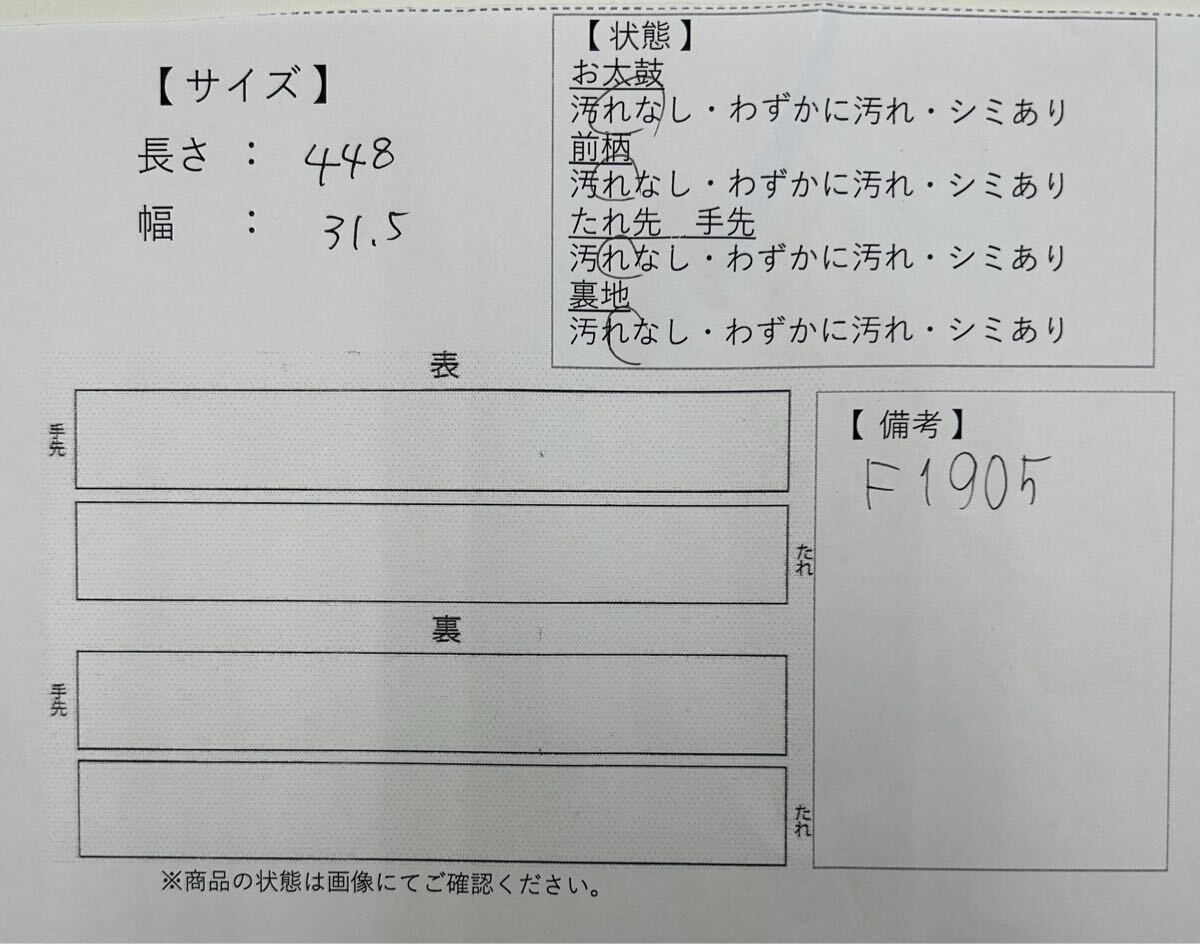 【サイズ】
長さ : 448
幅 : 31.5
【状態】
お太鼓
汚れなし・わずかに汚れ・シミあり
前柄
汚れなし・わずかに汚れ・シミあり
たれ先 手先
汚れなし・わずかに汚れ・シミあり
裏地
汚れなし・わずかに汚れ・シミあり
表
手先
たれ
裏
手先
たれ
【備考】
F1905
※商品の状態は画像にてご確認ください。